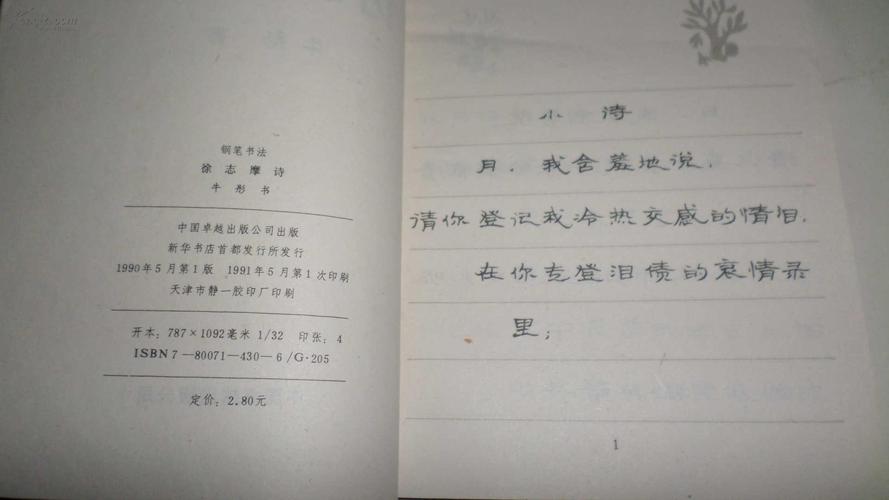 钢笔书法
徐志摩诗
牛彤 书
中国卓越出版公司出版
新华书店首都发行所发行
1990年5月第1版 1991年5月第1次印刷
天津市静一胶印厂印刷
开本:787×1092毫米 1/32 印张:4
ISBN7—80071—430—6/G·205
定价:2.80元
小诗
月,我含羞地说,
请你登记我冷热交感的情泪,
在你专登泪债的哀情录
里;
1